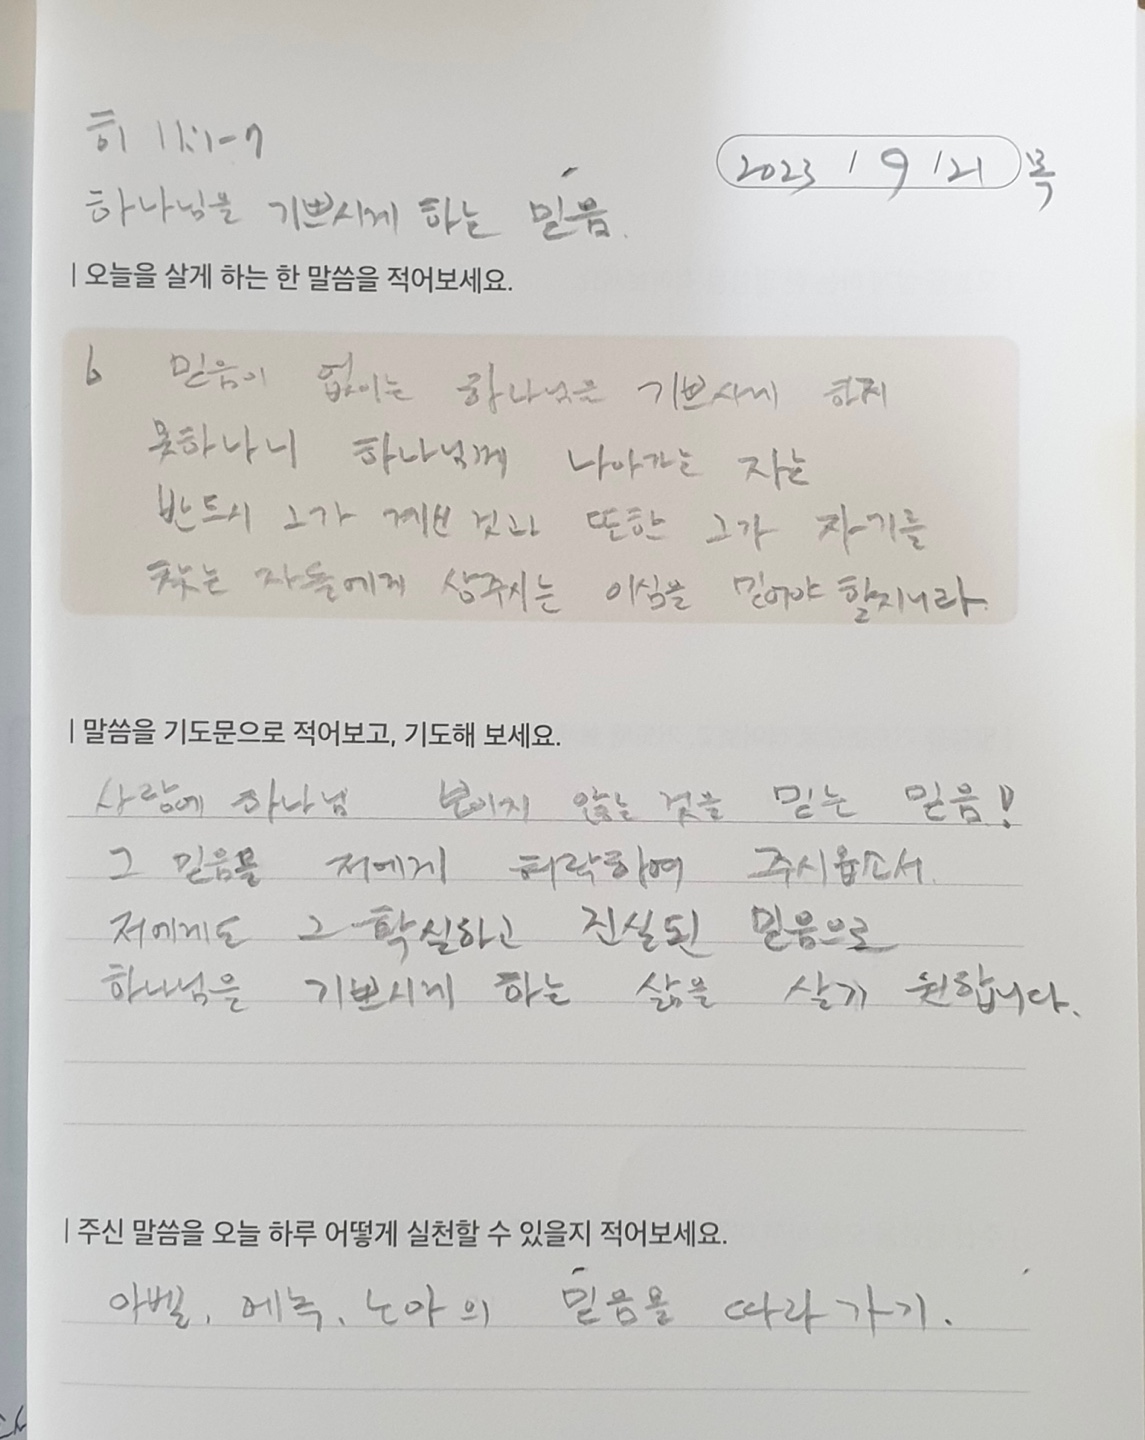 히 11:1-7
2023 / 9 / 21 목
하나님을 기쁘시게 하는 믿음.
| 오늘을 살게 하는 한 말씀을 적어보세요.
6 믿음이 없이는 하나님을 기쁘시게 하지
못하나니 하나님께 나아가는 자는
반드시 그가 계신 것과 또한 그가 자기를
찾는 자들에게 상주시는 이심을 믿어야 할지니라.
| 말씀을 기도문으로 적어보고, 기도해 보세요.
사랑에 하나님 보이지 않는 것을 믿는 믿음!
그 믿음을 저에게 허락하여 주시옵소서.
저에게도 그 확실하고 진실된 믿음으로
하나님을 기쁘시게 하는 삶을 살기 원합니다.
| 주신 말씀을 오늘 하루 어떻게 실천할 수 있을지 적어보세요.
아벨, 에녹, 노아의 믿음을 따라가기.